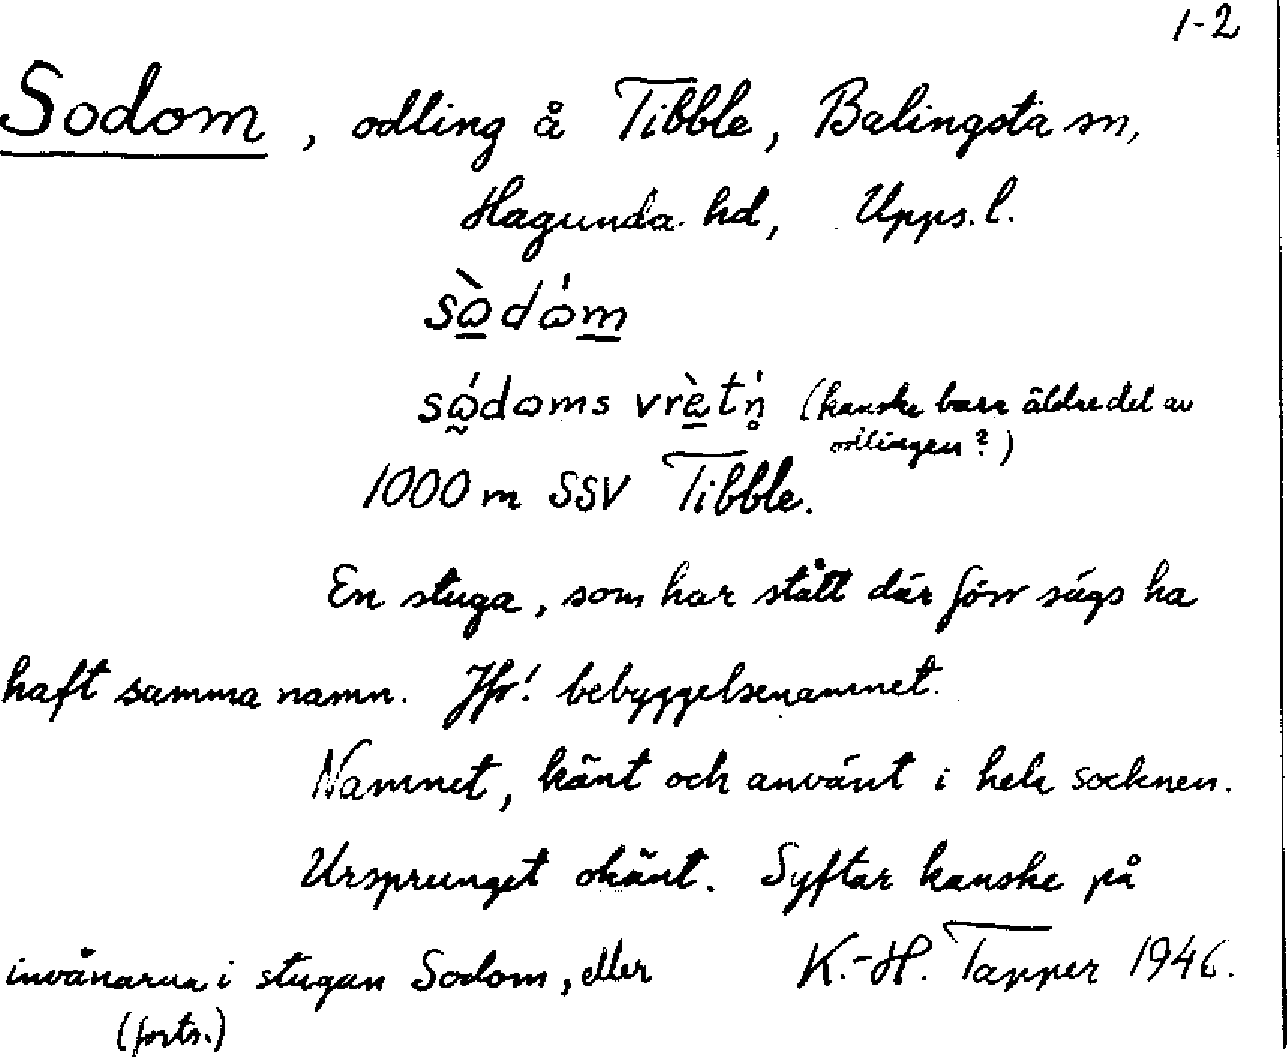 1-2
Sodom, odling å Tibble, Balingsta sn,
Hagunda hd, Upps. l.
sὼdώm
sώdωms vrètn̥ (kanske bara äldre del av
odlingen?)
1000 m SSV Tibble.
En stuga, som har stått där förr sägs ha
haft samma namn. Jfr! bebyggelsenamnet.
Namnet, känt och använt i hela socknen.
Ursprunget okänt. Syftar kanske på
invånarna i stugan Sodom, eller K.-H. Tapper 1946.
(forts.)